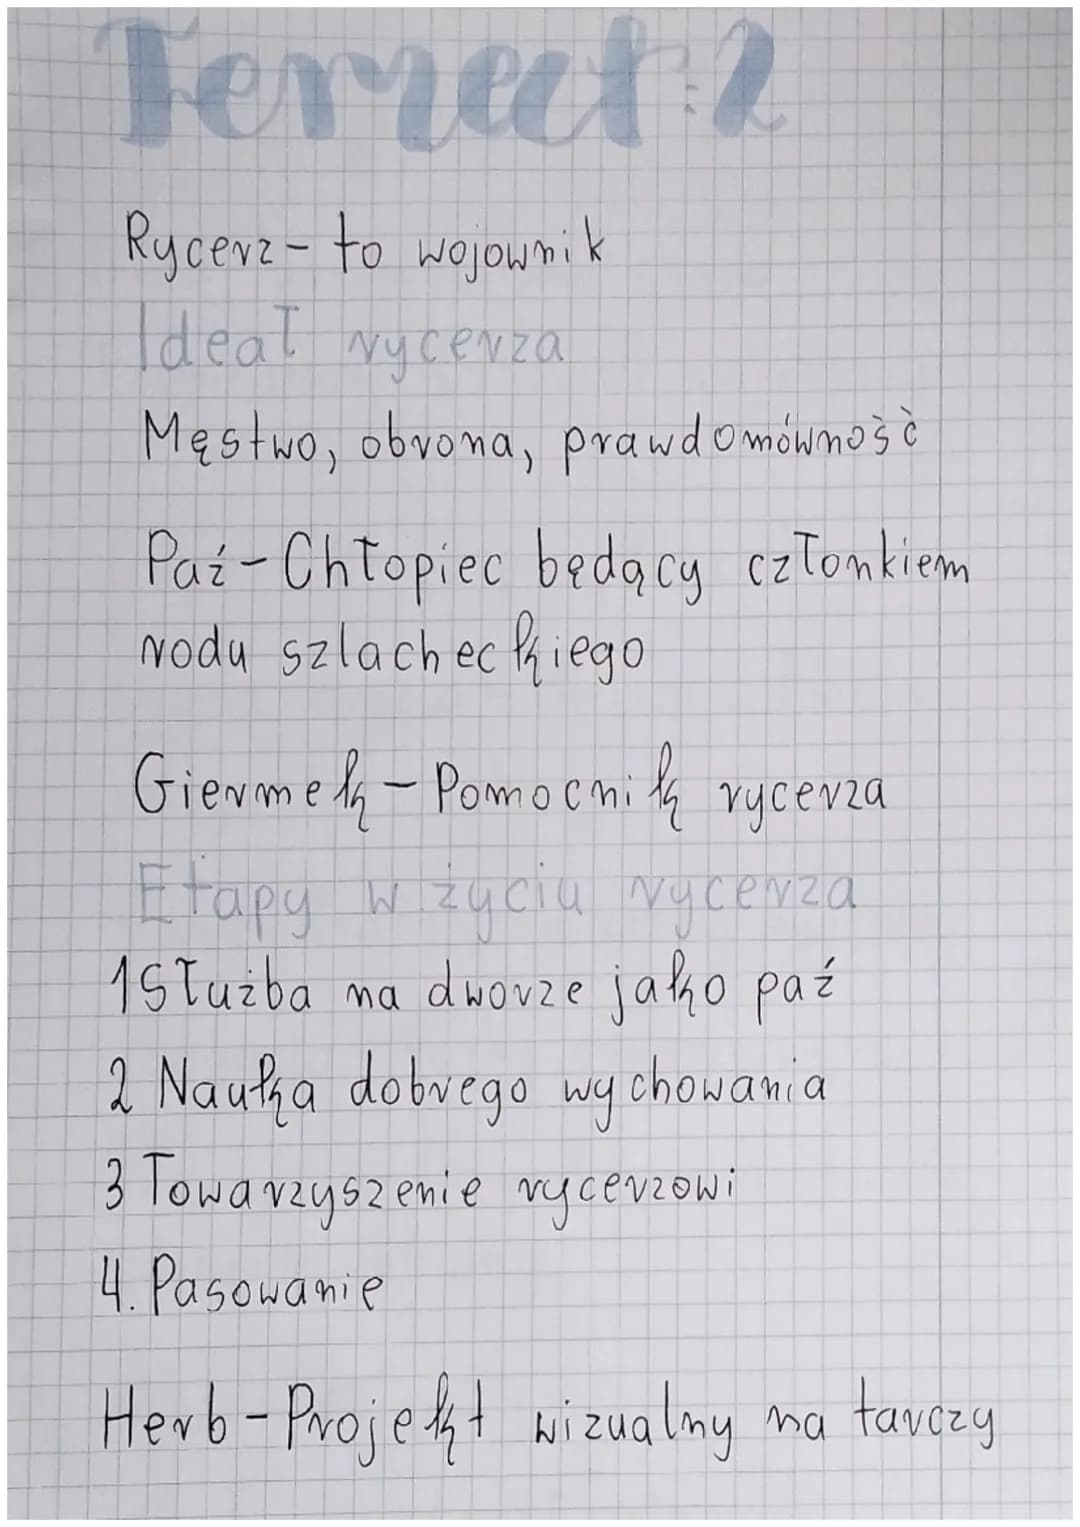 Temat: 2
Rycerz - to wojownik
Ideał rycerza
Męstwo, obrona, prawdomówność
Paź - Chłopiec będący członkiem
rodu szlacheckiego
Giermek - Pomocnik rycerza
Etapy w życiu rycerza
1 Służba na dworze jako paź
2 Nauka dobrego wychowania
3 Towarzyszenie rycerzowi
4. Pasowanie
Herb - Projekt wizualny na tarczy